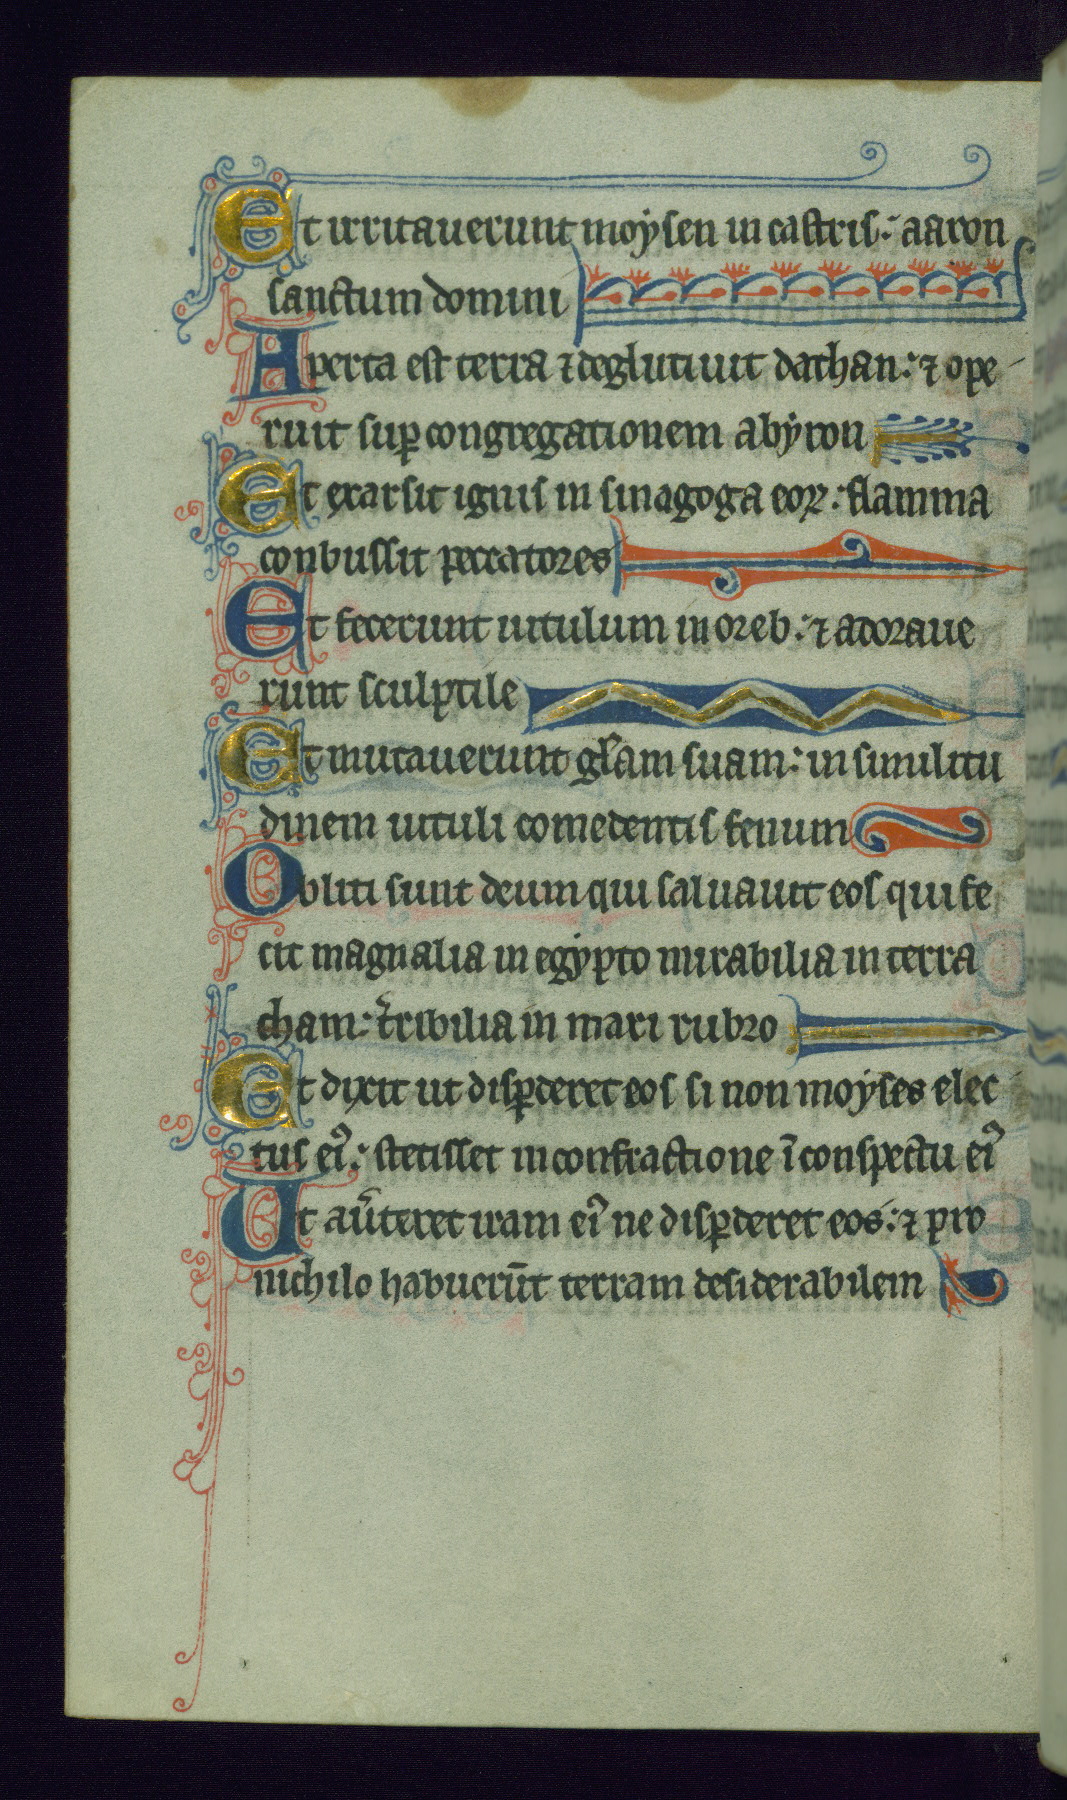 Et irritauerunt moẏsen in castris: aaron
sanctum domini
Aperta est terra ⁊ deglutiuit dathan: ⁊ ope
ruit suꝑ congregationem abẏron
Et exarsit ignis in sinagoga eoꝝ: flamma
conbussit peccatores
Et fecerunt uitulum in oreb: ⁊ adoraue
runt sculptile
Et mutauerunt gl̄am suam: in similitu
dinem uituli comedentis fenum
Obliti sunt deum qui saluauit eos qui fe
cit magnalia in egẏpto mirabilia in terra
cham: t̾ribilia in mari rubro
Et dixit ut disꝑderet eos si non moẏses elec
tus ei᾽: stetisset in confractione ī conspectu ei᾽
Ut au̾teret iram ei᾽ ne disꝑderet eos: ⁊ pro
nichilo habuerūt terram desiderabilem